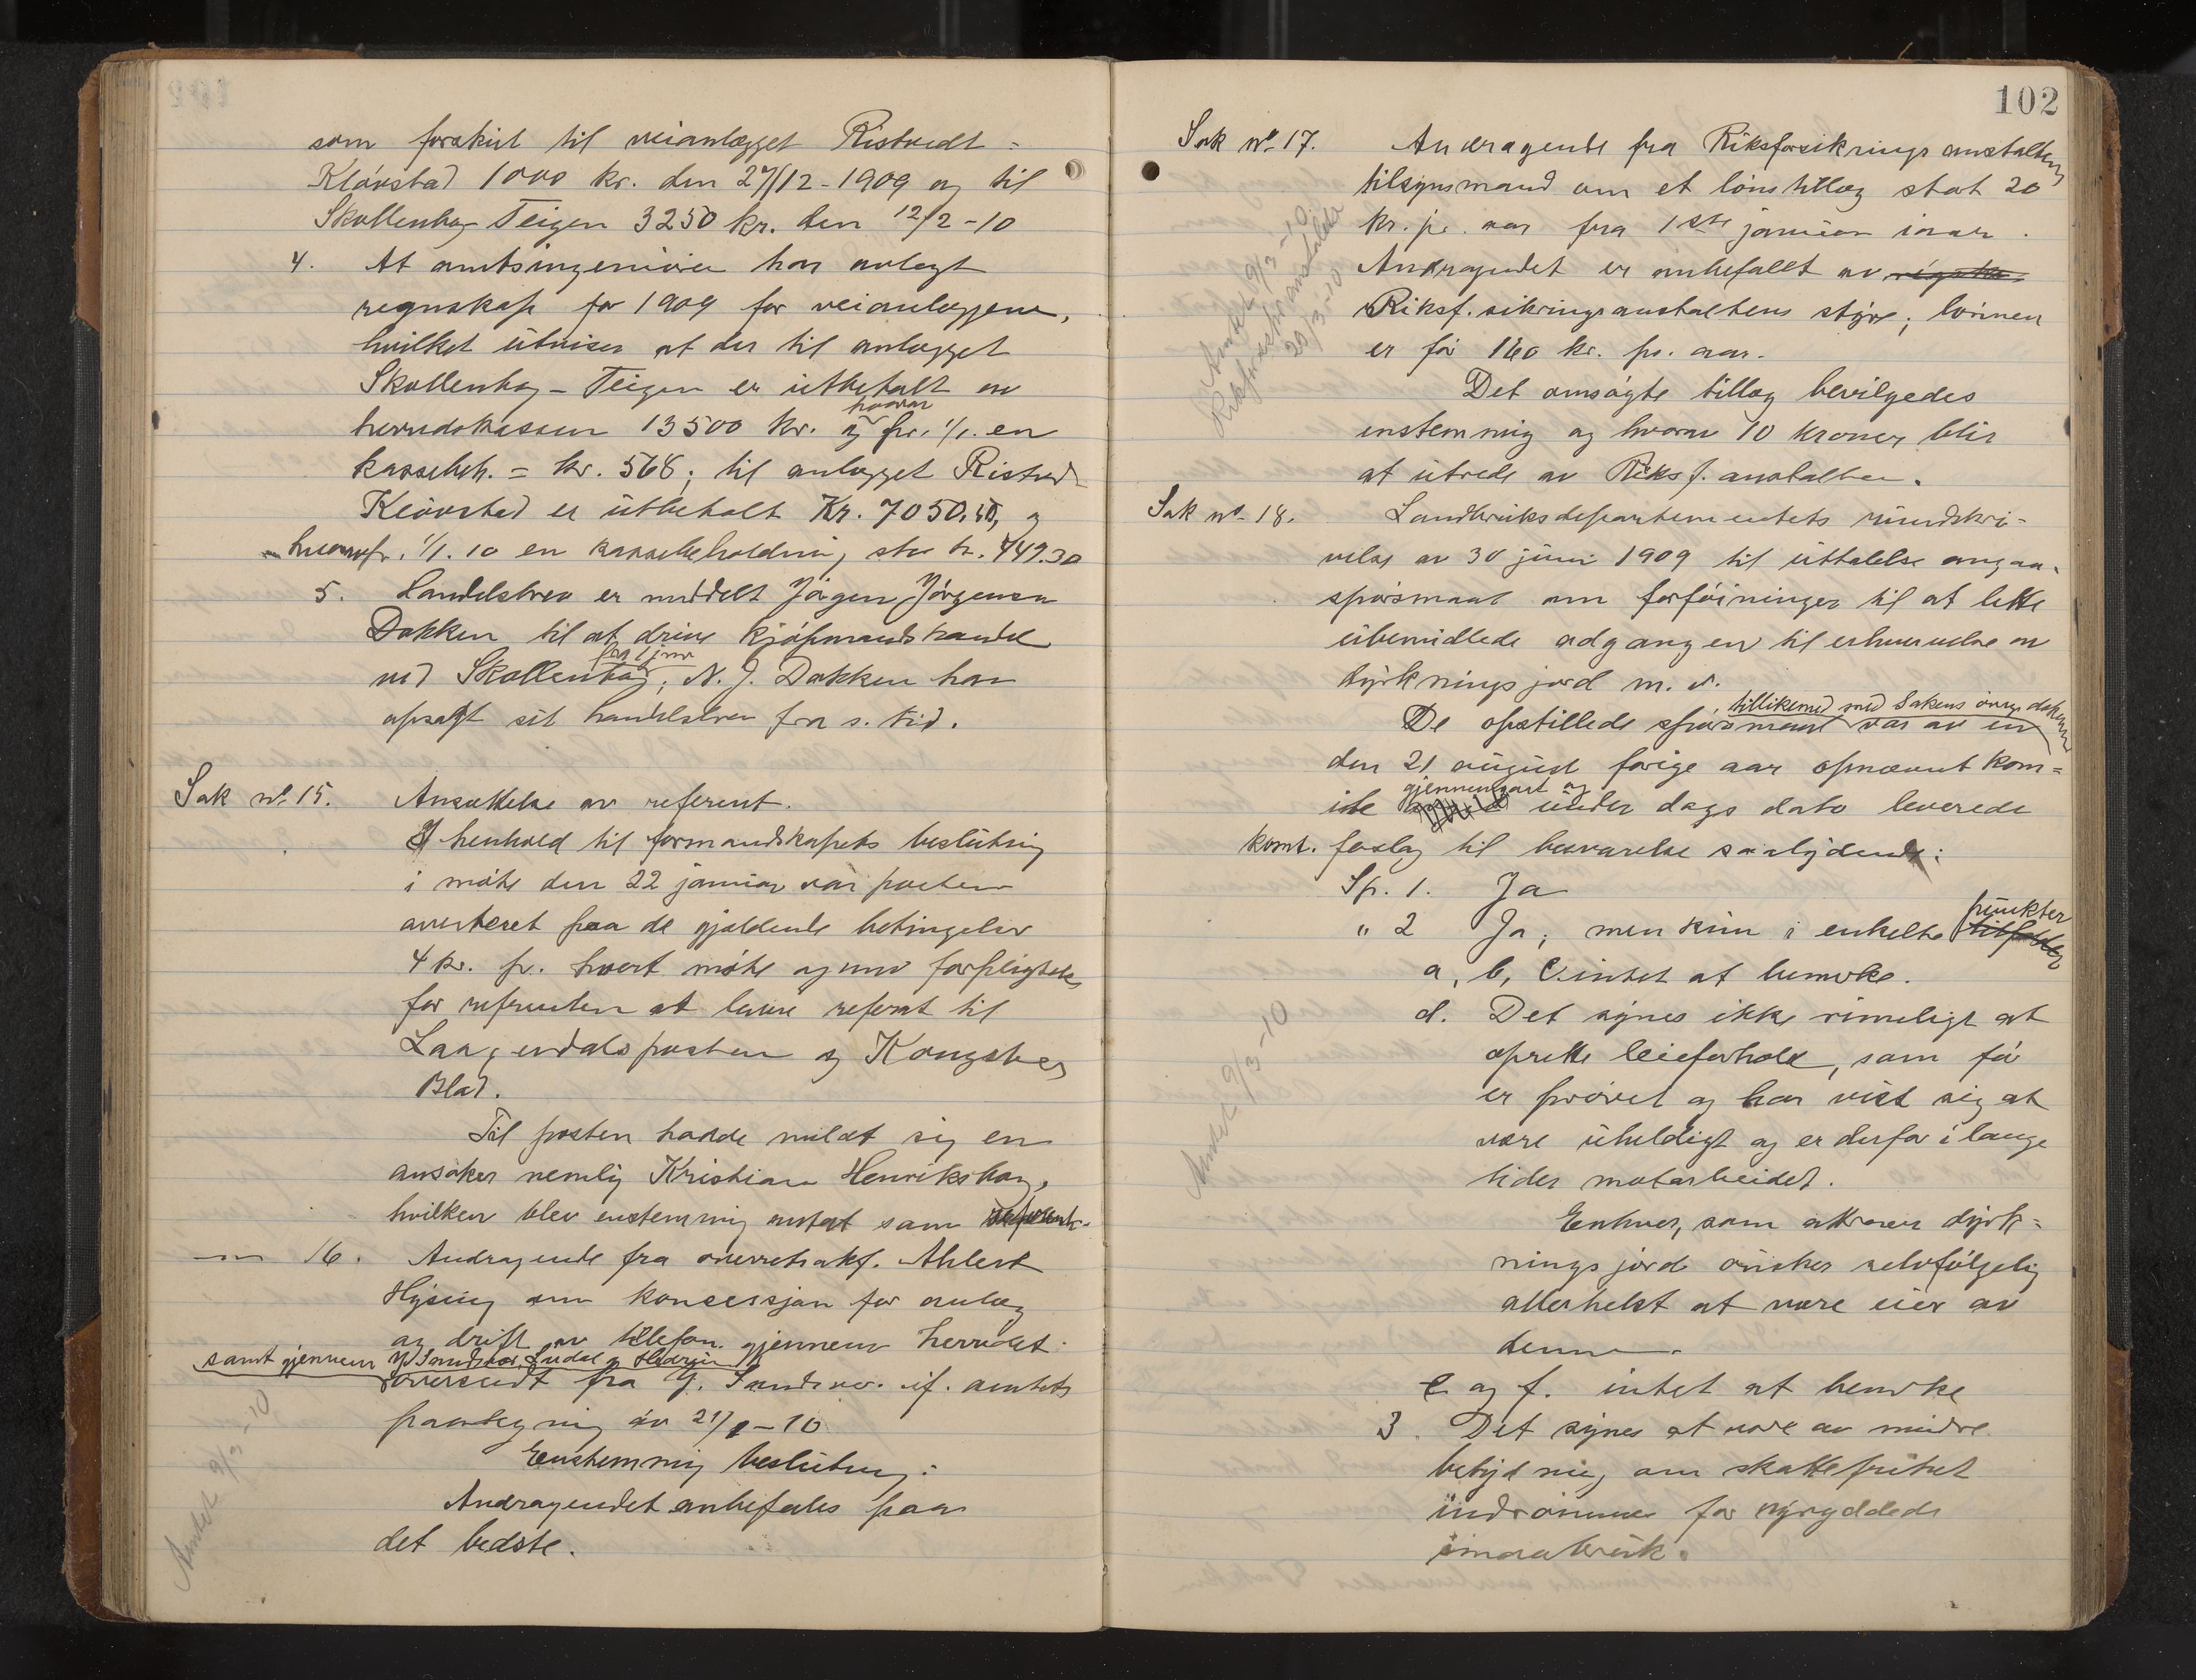 som forskud til veianlægget Ristvedt =
Kløvstad 1000 kr. den 27/12-1909 og til
Skollenborg-Teigen 3250 kr. den 12/2-10
4. At amtsingeniøren har avlagt
regnskap for 1909 for veianlæggene,
hvilket utviser at der til anlægget
Skollenborg-Teigen er utbetalt av
hvorav
herredskassen 13500 kr. og pr. 1/1. en
kassebeh. = kr. 568; til anlægget Ristvedt
Kløvstad er utbetalt Kr. 7050,50, og
hvorav pr. 1/1. 10 en kassebeholdning stor kr. 749.30
5. Handelsbrev er meddelt Jørgen Jørgensen
Dokken til at drive kjøpmandshandel
fra 1 jan
ved Skollenborg; N. J. Dokken har
opsagt sit handelsbrev fra s. tid.
Sak No 15. Ansættelse av referent.
I henhold til formandskapets beslutning
i møte den 22 januar var posten
averteret paa de gjældende betingelser
4 kr. pr. hvert møte og med forpligtelse
for referenten at levere referat til
Laagendalsposten og Kongsberg
Blad.
Til posten hadde meldt sig en
ansøker nemlig Kristian Henriksborg,
hvilken blev enstemmig antat som referent.
— 16. Andragende fra overretssakf. Ahlert
Hysing om konsessjon for anlæg
og drift av telefon gjennem herredet
samt gjennem Y. Sandsvær, Ludal og Hedrum
oversendt fra Y. Sandsvær if. amtets
paategning av 21/1-10
Enstemmig beslutning:
Andragendet anbefales paa
det bedste.
Amtet 9/3-10
102
Sak No 17. Andragende fra Riksforsikringsanstaltens
tilsynsmand om et lønstillæg stort 20
kr. pr. aar fra 1ste januar iaar.
Andragendet er anbefallt av
Riksf.sikringsanstaltens styre; lønnen
er før 160 kr. pr. aar.
Det ansøgte tillæg bevilgedes
enstemmig og hvorav 10 kroner blir
at utrede av Riksf. anstalten.
Amtet 9/3-10.
Riksforsikr.anstalten
20/3-10
Sak No 18. Landbruksdepartementets rundskri-
velse av 30 juni 1909 til uttalelse angaa.
spørsmaal om forføininger til at lette
ubemidlede adgangen til erhvervelse av
dyrkningsjord m. v.
tillikemed med Sakens øvrige dokumenter
De opstillede spørsmaal var av en
den 21 august forige aar opnævnt kom=
gjennemgaat og
ite under dags dato leverede
komt. forslag til besvarelse saalydende:
Sp. 1. Ja
" 2 Ja; men kun i enkelte punkter
a, b, c intet at bemerke.
d. Det synes ikke rimeligt at
oprette leieforhold, som før
er prøvet og har vist sig at
være uheldigt og er derfor i lange
tider motarbeidet.
Enhver, som attraar dyrk=
ningsjord ønsker selvfølgelig
allerhelst at være eier av
denne.
e og f. intet at bemerke
3. Det synes at være av mindre
betydning om skattefrihet
indrømmes for nyryddede
smaabruk.
Amtet 9/3-10